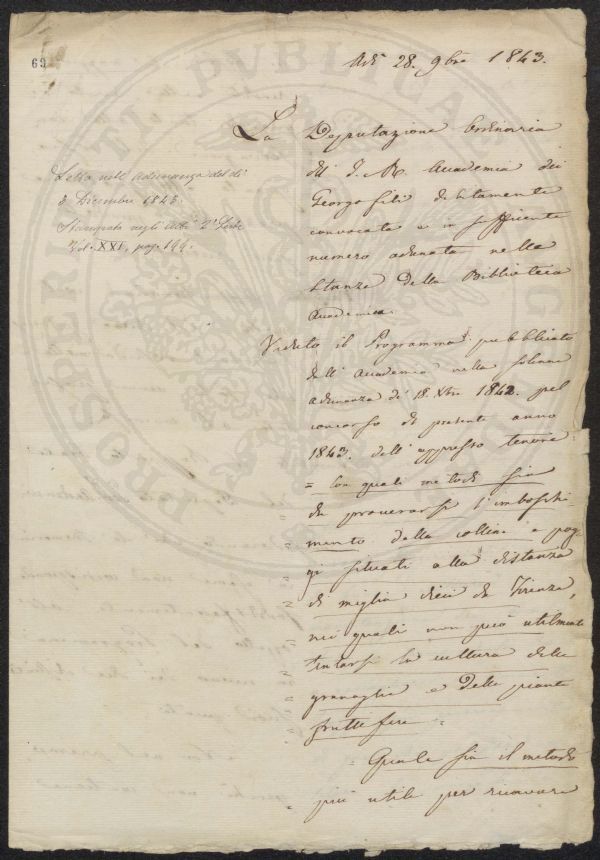 69
Adì 28. 9bre 1843.
La Deputazione Ordinaria
dell' I. R. Accademia dei
Georgofili debitamente
convocata e in sufficiente
numero adunata nella
Stanza della Biblioteca
Accademica.
Letta nell' adunanza del dì
3 Dicembre 1843.
Stampato negli Atti 2ª Serie
Vol. XXI, pag. 144.
Veduto il Programma pubblicato
dall' Accademia nella solenne
adunanza de' 18. Xbre 1842. pel
concorso di presente anno
1843. dell' appresso tenore:
= Con quali metodi sia
da procurarsi l'imboschi
mento delle colline e pog
gi situati alla distanza
= di miglia dieci da Firenze,
nei quali non può utilmente
= tentarsi la cultura delle
= granaglie e delle piante
fruttifere =
= Quale sia il metodo
più utile per ricavare
PROSPERITATI PVBLICAE